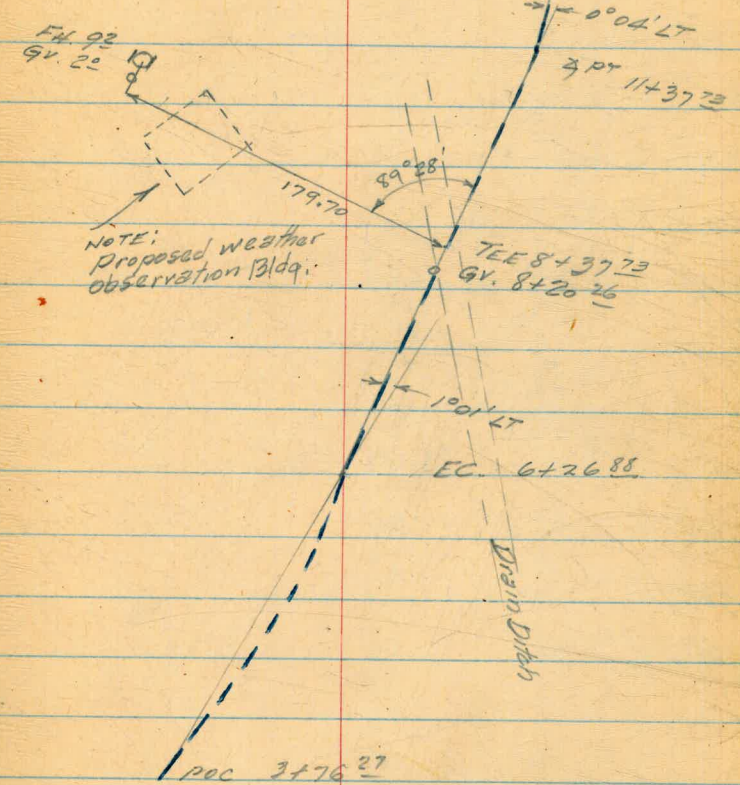 0°04' LT
FH. 92
Gv. 2º
∡ PT
11+37 73
89°28'
179.70
NOTE:
Proposed weather
observation Bldg.
TEE 8+37 73
Gv. 8+20 26
1°01' LT
EC. 6+26 88
Drain Ditch
POC 3+76 27